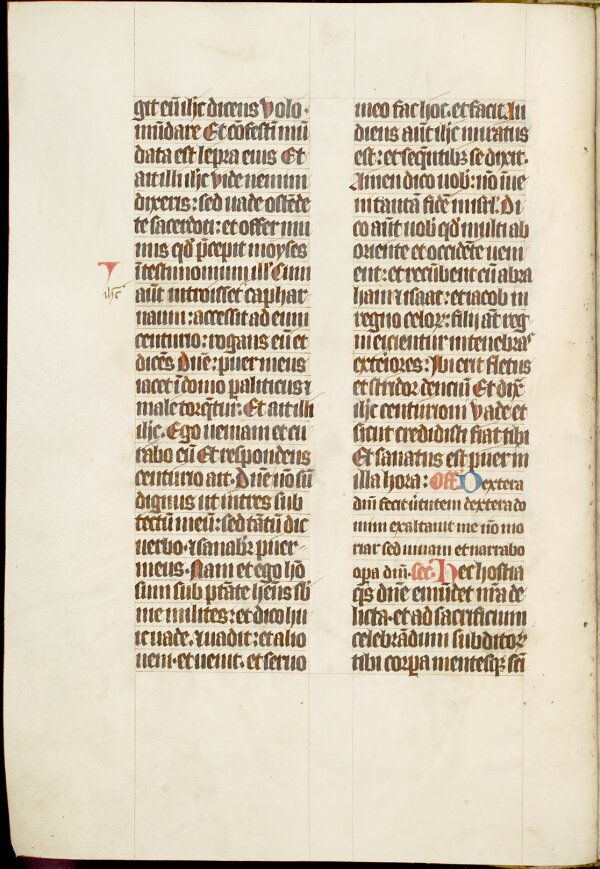 git eū ih̄c dicens Volo·
mūdare Et cōfestī mū
data est lepra eius Et
ait illi ih̄c Vide nemini
dixeris: sed uade ostēde
te sacerdoti: et offer mu
nus qd̄ p̄cepit moyses
ī testimonium ill' Cum
aūt introisset caphar
ih̄c
naum: accessit ad eum
centurio: rogans eū et
dicēs Dn̄e: puer meus
iacet ī domo paliticus ⁊
male torq̄tur. Et ait illi
ih̄c. Ego ueniam et cu
rabo eū Et respondens
centurio ait. Dn̄e nō sū
dignus ut intres sub
tectū meū: sed tātū dic
uerbo· ⁊ sanabr̄ puer
meus. Nam et ego hō
sum sub ptāte hn̄s sb
me milites: et dico hu
ic uade. ⁊ uadit: et alio
ueni· et uenit. et seruo
meo fac hoc. et facit. Au
diens aūt ih̄c miratus
est: et seq̄ntibꝫ se dixit.
Amen dico uob̄: nō inue
ni tantā fidē in isrl̄. Di
co aūt uob̄ qd̄ multi ab
oriente et occidēte ueni
ent: et recūbent cū abra
ham ⁊ isaac: et iacob in
regno celoꝝ: filij aūt reg
ni eicientur in tenebras
exteriores: Ibi erit fletus
et stridor denciū Et dix̄
ih̄c centurioni Vade et
sicut credidisti fiat tibi
Et sanatus est puer in
illa hora: Off Dextera
dn̄i fecit ūtutem dextera do
mini exaltauit me nō mo
riar sed uiuam et narrabo
opa dn̄i. Sec̄. Hec hostia
qs̄ dn̄e emūdet nr̄a de
licta. et ad sacrificium
celebrādum subditoꝝ
tibi corpa mentesqꝫ scī